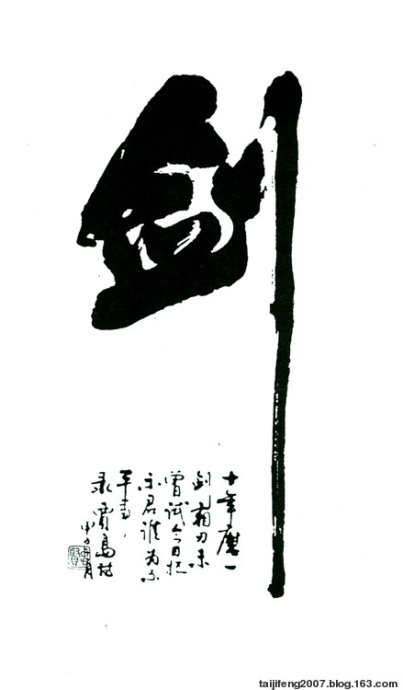 剑
十年磨一
剑霜刃未
曾试今日把
示君谁为不
平事
录贾岛诗
taijifeng2007.blog.163.com